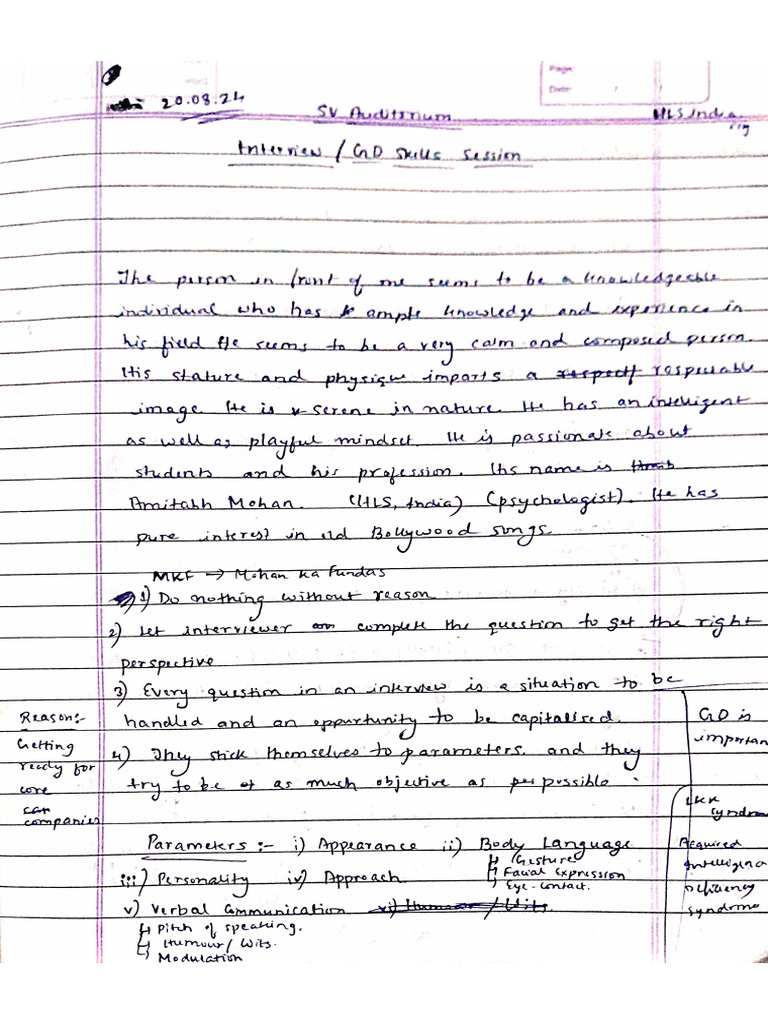 Page:
Date:
20.08.24
SV Auditorium
HLS, India
Interview / GD Skills Session
The person in front of me seems to be a knowledgeable
individual who has ample knowledge and experience in
his field He seems to be a very calm and composed person.
His stature and physique imparts a respectable
image. He is serene in nature. He has an intelligent
as well as playful mindset. He is passionate about
students and his profession. His name is
Amitabh Mohan. (HLS, India) (psychologist). He has
pure interest in old Bollywood songs.
MKF → Mohan Ka Fundas
1) Do nothing without reason
2) Let interviewer complete the question to get the right
perspective
3) Every question in an interview is a situation to be
handled and an oppurtunity to be capitalised.
4) They stick themselves to parameters, and they
try to be as much objective as possible.
Reason:-
Getting
ready for
core
companies
GD is
important
syndrome
Acquired
Intelligence
Deficiency
syndrome
Parameters :- i) Appearance ii) Body Language
↳ Gesture
↳ Facial Expression
↳ Eye-contact.
iii) Personality iv) Approach
v) Verbal Communication vi) Humour / Wits.
↳ Pitch of speaking.
↳ Humour / Wits.
↳ Modulation